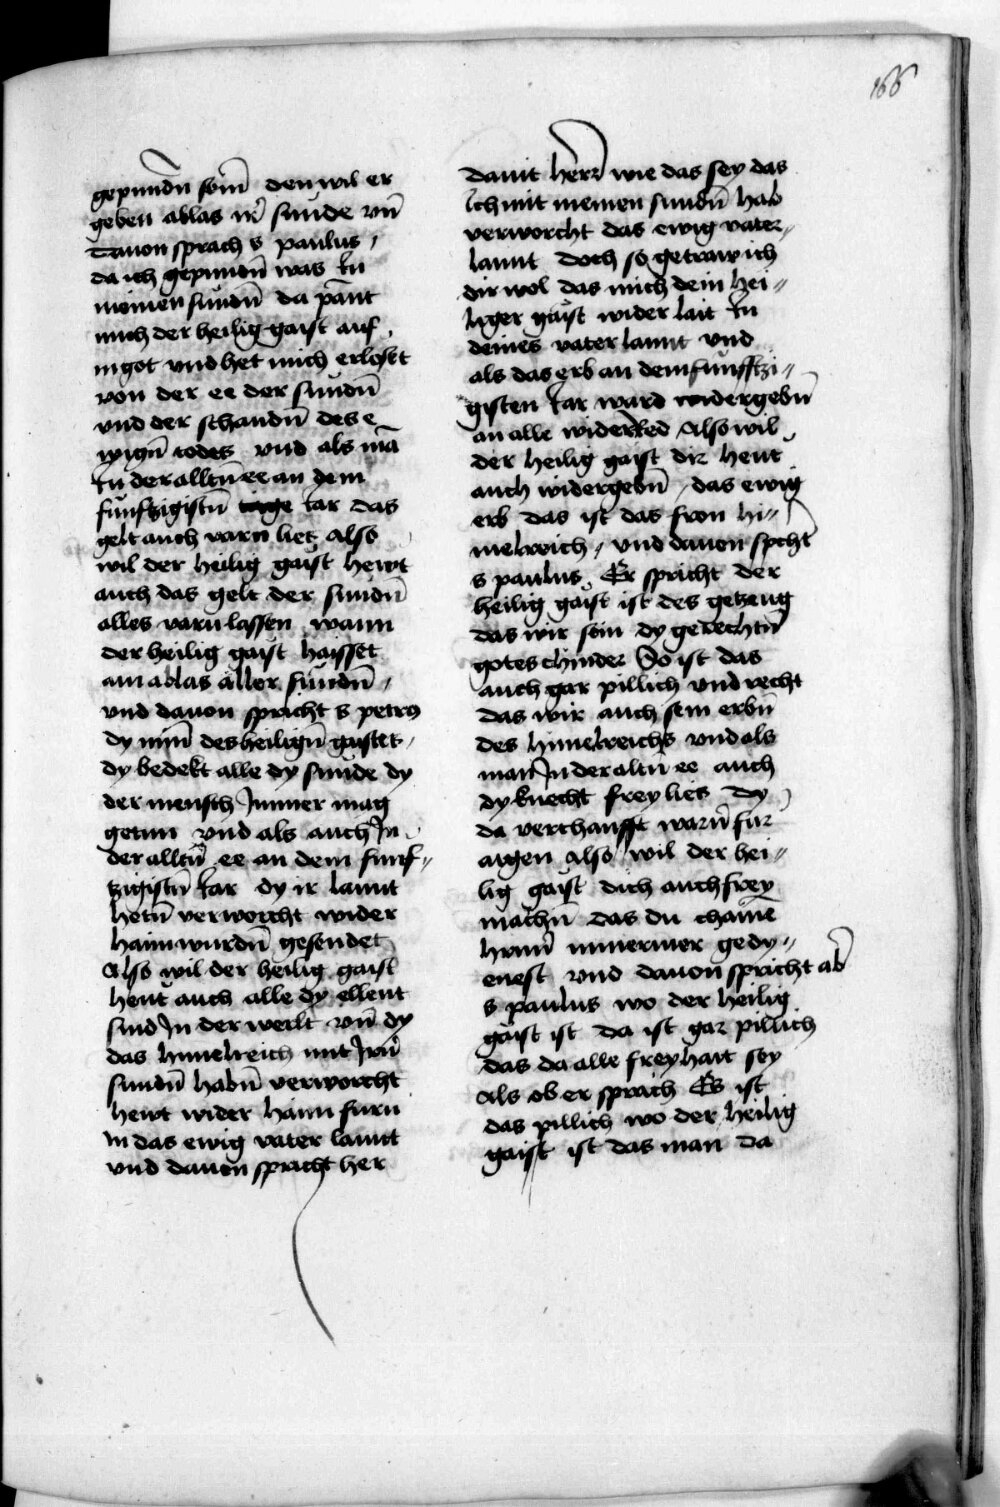 166
gepundn̄ sein̄ den wil er
geben ablas ir̄ sunde vn̄
Dauon sprach s paulus /
da ich gepundn̄ was In
meinen sundn̄ da pant
mich der heilig gaist auf
in got vnd het mich erlost
von der ee der sundn̄
vnd der schandn̄ des e
wign̄ todes vnd als mā
In der alltn̄ ee an dem
funftzigistn̄ Iar das
gelt auch varn liet Also
wil der heilig gaist hewt
auch das gelt der sundn̄
alles varn lassen wann
der heilig gaist haisset
ain ablas aller sundn̄ /
vnd dauon spricht s petrus
dy min̄ des heilign̄ gaistet /
dy bedekt alle dy sunde dy
der mensch Immer mag
getun vnd als auch In
der alltn̄ ee an dem funf=
tzigistn̄ Iar dy ir lannt
hetn̄ verworcht wider
haim wurdn̄ gesendet
Also wil der heilig gaist
hewt auch alle dy ellent
sind In der werlt vn̄ dy
das himelreich mit Irn̄
sundn̄ habn̄ verworcht
hewt wider haim furn
In das ewig vater lannt
vnd dauon spricht her
Dauit herr̄ wie das sey das
Ich mit meinen sundn̄ hab
verworcht das ewig vater=
lannt doch so getraw ich
dir wol das mich dein hei=
liger gaist wider lait In
deines vater lannt vnd
als das erb an dem funfftzi=
gisten Iar ward widergebn̄
an alle widerred Also wil
der heilig gaist dir hewt
auch widergebn̄ / das ewig
erb das ist das fron hi=
melreich / vnd dauon spcht
s paulus / Er spricht der
heilig gaist ist des getzeug
das wir sein dy gerechtn̄
gotes chinder So ist das
auch gar pillich vnd recht
das wir auch sein erbn̄
des himelreichs vnd als
man In der altn̄ ee auch
dy knecht frey lies dy
da verchaufft warn̄ fur
aigen Also wil der hei=
lig gaist dich auch frey
machn̄ das du chaine
herrn̄ nimermer gedy=
enest vnd dauon spricht ab̄
s paulus wo der heilig
gaist ist da ist gar pillich
das da alle freyhait sey
Als ob er sprach Es ist
das pillich wo der heilig
gaist ist das man da